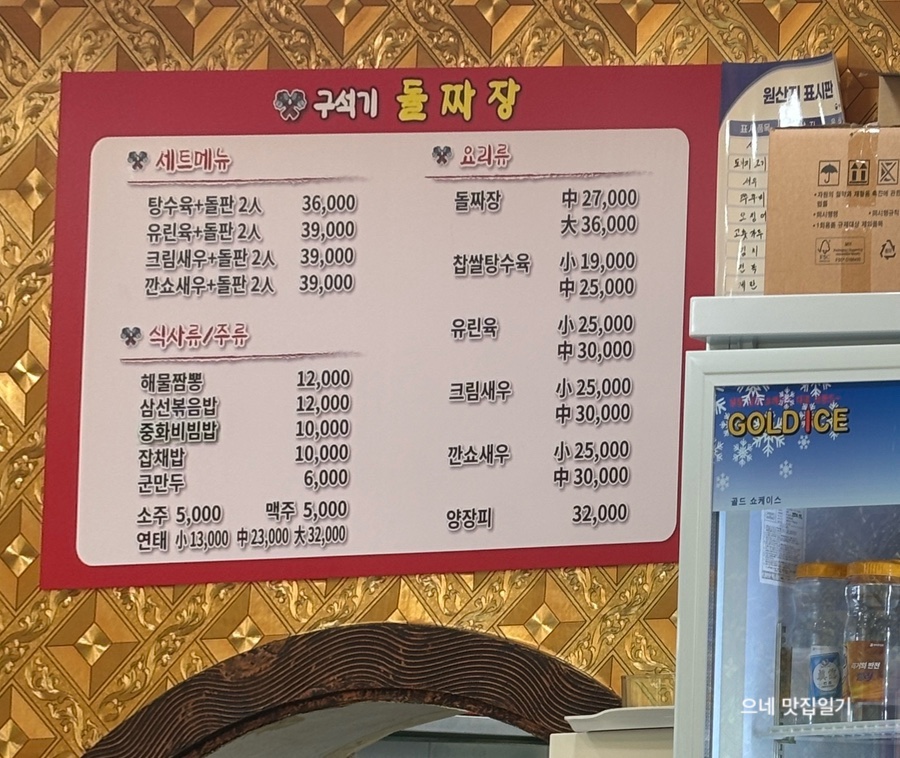 구석기 돌짜장
세트메뉴
탕수육+돌판 2人 36,000
유린육+돌판 2人 39,000
크림새우+돌판 2人 39,000
깐쇼새우+돌판 2人 39,000
식사류/주류
해물짬뽕 12,000
삼선볶음밥 12,000
중화비빔밥 10,000
잡채밥 10,000
군만두 6,000
소주 5,000 맥주 5,000
연태 小13,000 中23,000 大32,000
요리류
돌짜장 中 27,000
大 36,000
찹쌀탕수육 小 19,000
中 25,000
유린육 小 25,000
中 30,000
크림새우 小 25,000
中 30,000
깐쇼새우 小 25,000
中 30,000
양장피 32,000
원산지 표시판
GOLD ICE
골드 쇼케이스
으네 맛집일기